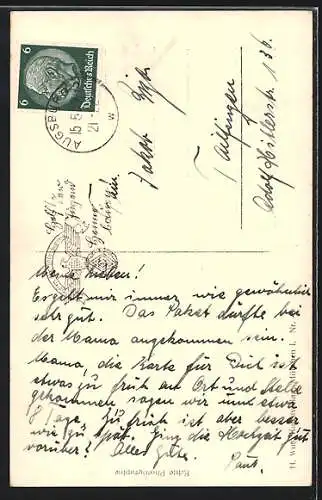 6 6
Deutsches Reich
AUGSBURG
15.5
21-
w
Helft
Jugend-
herbergen
bauen
Jakob
Tailfingen
Adolf Hitlerstr. 136.
Meine Lieben!
Es geht mir immer wie gewöhnlich
sehr gut. Das Paket dürfte bei
der Mama angekommen sein.
Mama, die Karte für Dich ist
etwas zu früh am Ort und Stelle
gekommen sagen wir und etwa
8 Tage. Zu früh ist aber besser
wie zu spät. Ging die Hochzeit gut
vorüber? Alles Gute.
Paul.
Echte Photographie